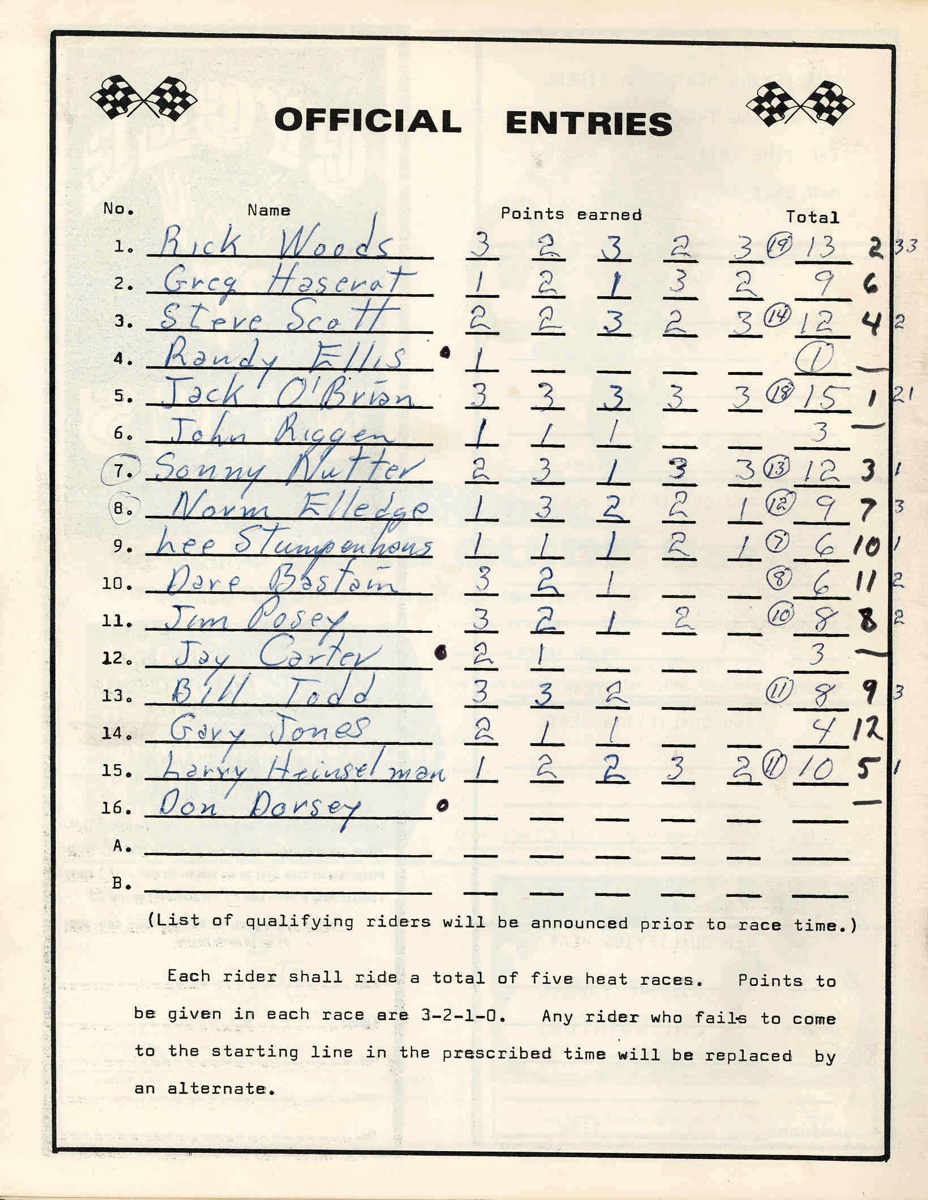 OFFICIAL ENTRIES
No. Name Points earned Total
1. Rick Woods 3 2 3 2 3 (19) 13 2 33
2. Greg Haserot 1 2 1 3 2 9 6
3. Steve Scott 2 2 3 2 3 (14) 12 4 2
4. Randy Ellis • 1 (1) —
5. Jack O'Brian 3 3 3 3 3 (18) 15 1 21
6. John Riggen 1 1 1 3 —
(7.) Sonny Nutter 2 3 1 3 3 (13) 12 3 1
(8.) Norm Elledge 1 3 2 2 1 (12) 9 7 3
9. Lee Stumpenhaus 1 1 1 2 1 (7) 6 10 1
10. Dave Bastain 3 2 1 (8) 6 11 2
11. Jim Posey 3 2 1 2 (10) 8 8 2
12. Jay Carter • 2 1 3 —
13. Bill Todd 3 3 2 (11) 8 9 3
14. Gary Jones 2 1 1 4 12
15. Larry Heinselman 1 2 2 3 2 (11) 10 5 1
16. Don Dorsey • —
A.
B.
(List of qualifying riders will be announced prior to race time.)
Each rider shall ride a total of five heat races. Points to
be given in each race are 3-2-1-0. Any rider who fails to come
to the starting line in the prescribed time will be replaced by
an alternate.